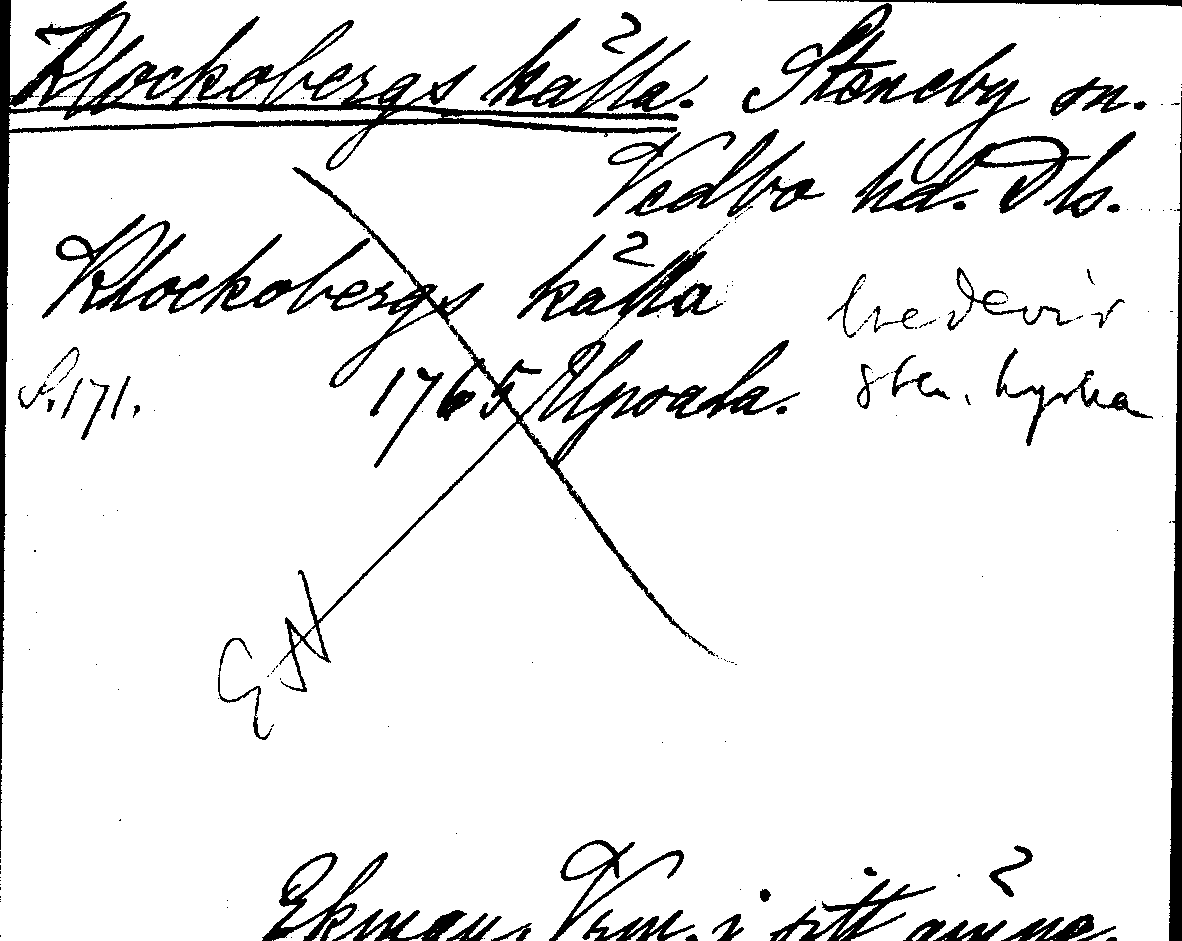 Klockobergs källa. Steneby sn.
Vedbo hd. Dls.
Klockobergs källa
bredevid
S. 171. 1765 Upsala. Sten. kyrka
EH
Ekman, Vrm. i sitt ämne